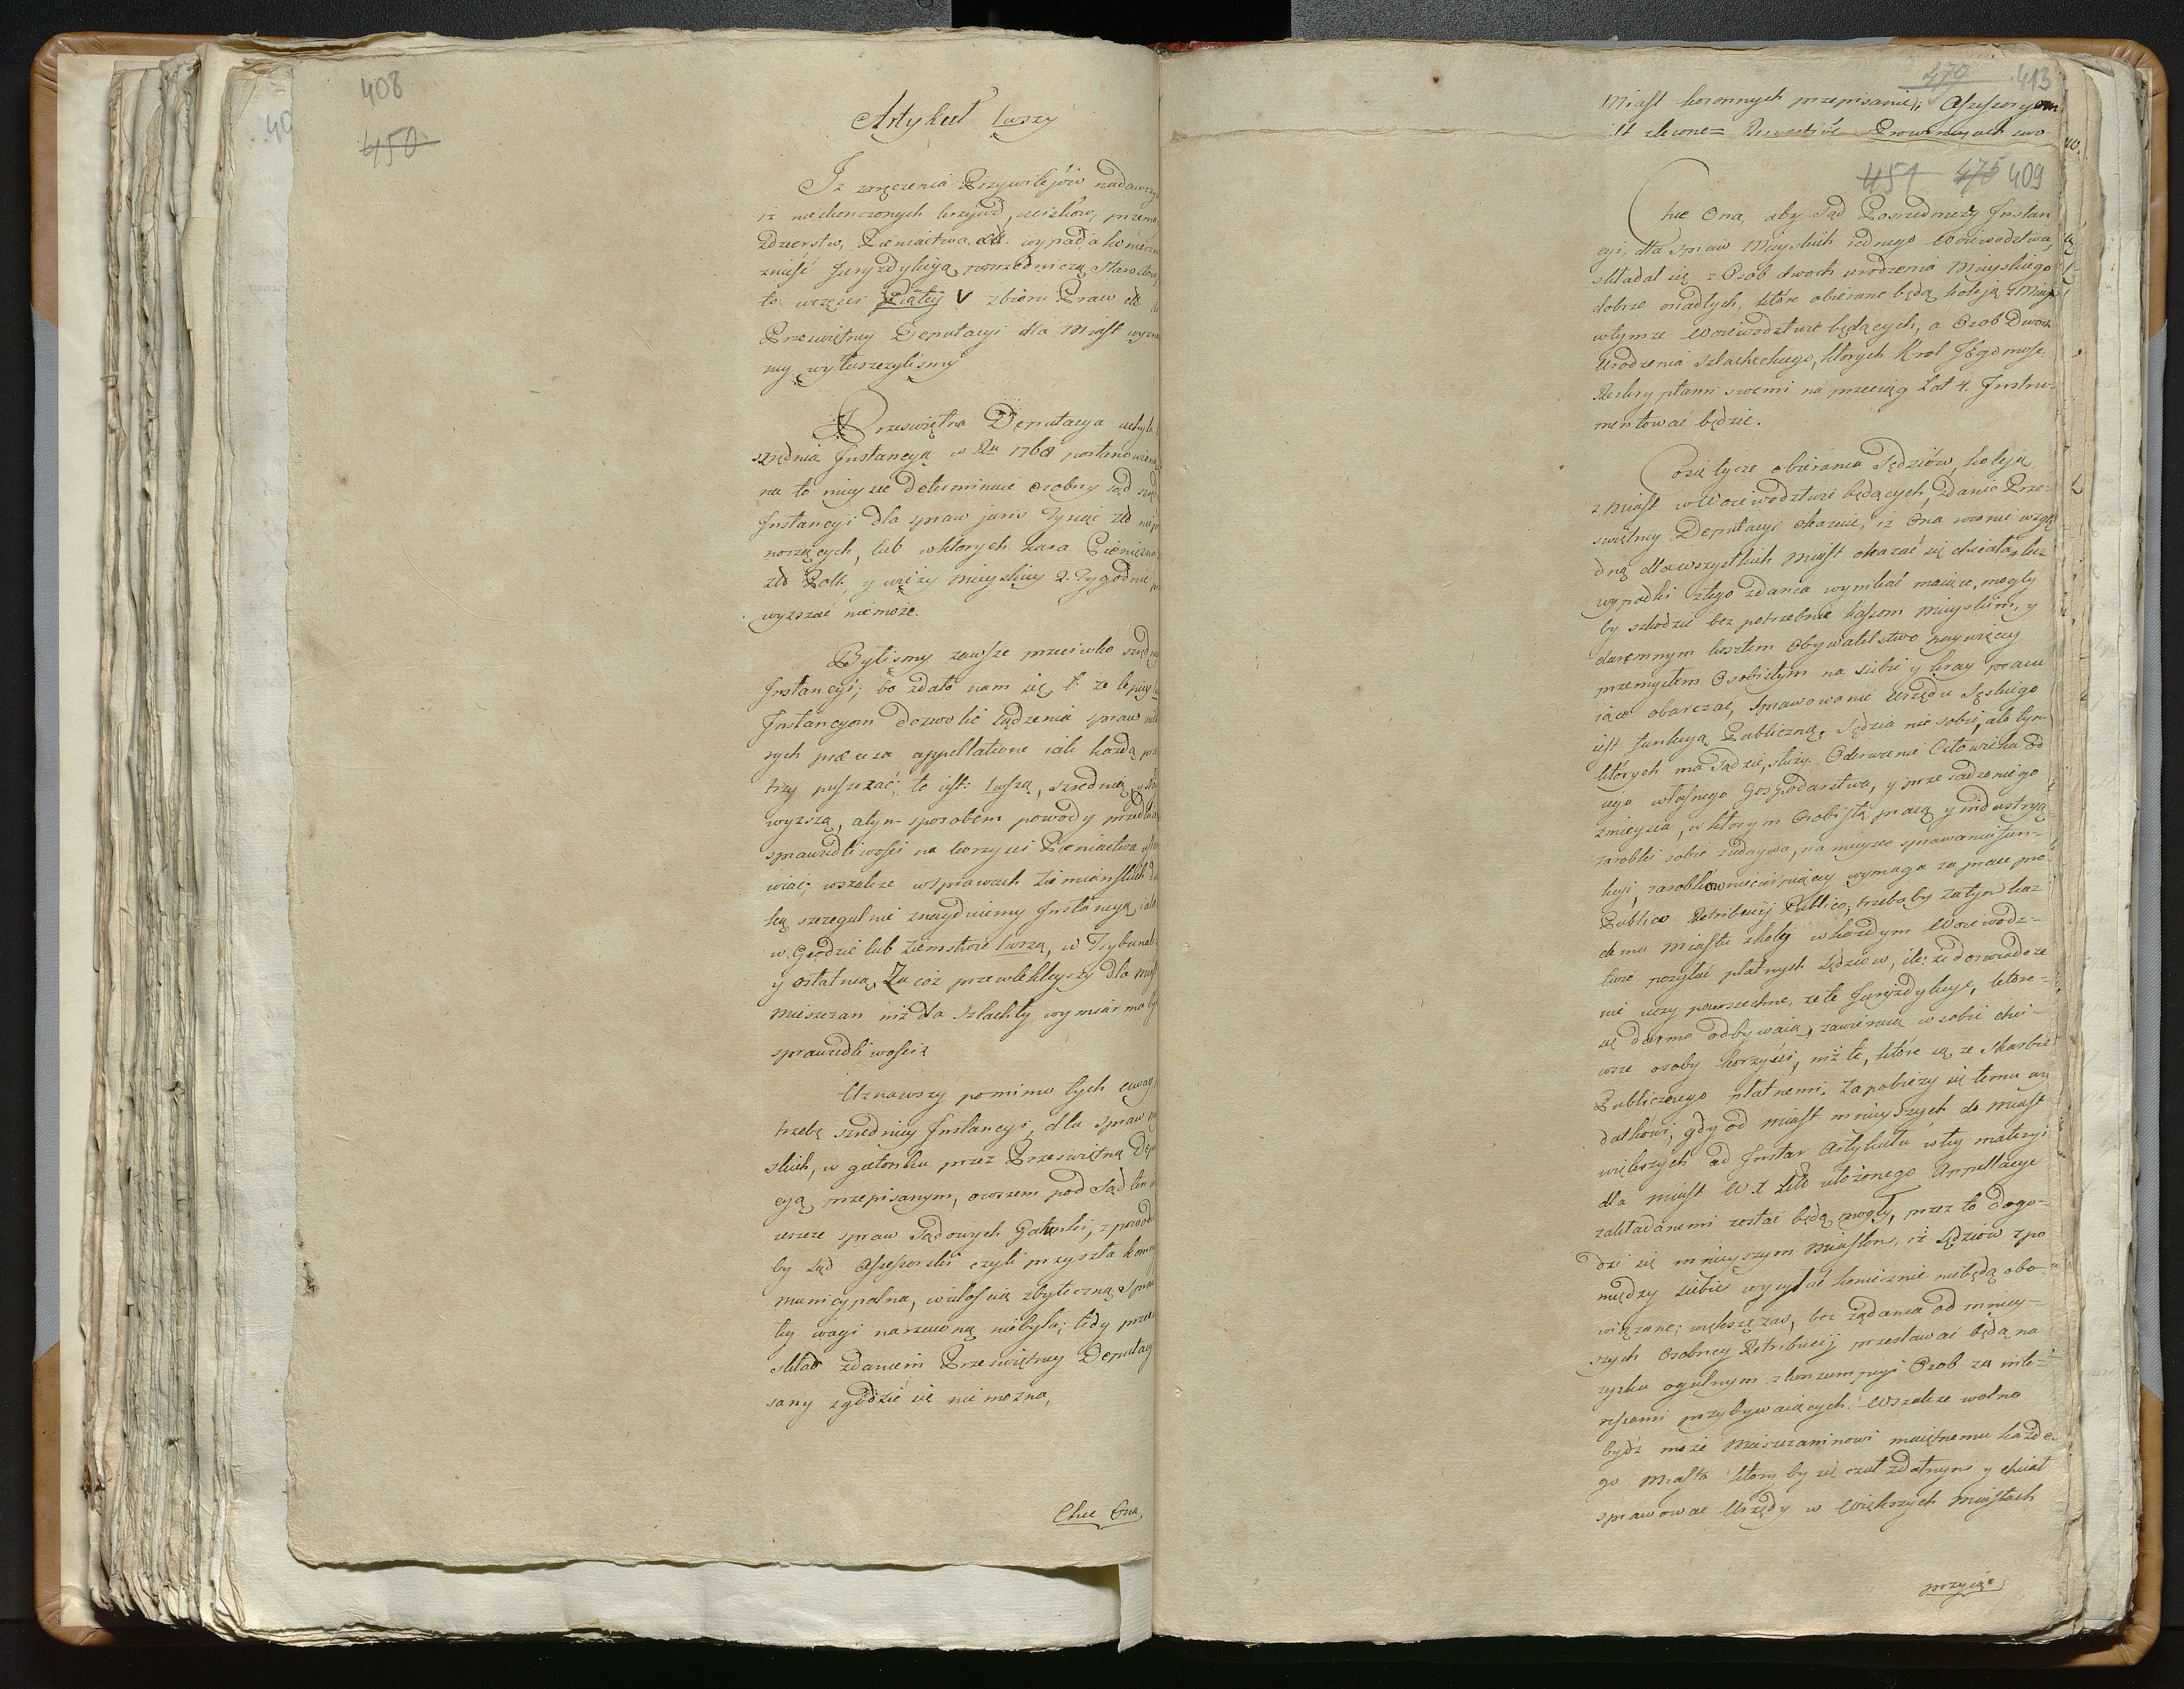 408
450
Artykuł 1wszy
Iż zaręczenia Przywilejów nadawczy
iż niedkończonych krzywd, ucisków, przemo
Zdzierstw, Pieniactwa, etc. wypada konieczn
znieść Juryzdykcyą pośredniczą Starościń
to wczęści Piątey V zbioru Praw etc
Prześwietney Deputacyi dla Miast wyzna
ney wytłuszczyliśmy
Prześwietna Deputacya uchyla
szrednia Instancyą w Rku 1768 postanowioną
na to mieysce determinuie osobny sąd szred
Instancyi dla spraw juris Tysiąc złł nieprze
noszących, lub wktorych kara Pieniężna
złł Poll. y wieży mieyskiey 2. Tygodnie prze
wyższać niemoże.
Byliśmy zawsze przeciwko szredniey
Instancyi; bo zdało nam się, że lepiey
Instancyom dozwolić sądzenia spraw
rych præcisa appellatione iak każdą prze
trzy puszczać; to iest: 1wszą, szrednią, y
wyższą, a tym sposobem powody przedłuż
sprawiedliwości na korzyści Pieniactwa
wiać; wszakże wsprawach Ziemiańskich
ką szczegulnie znaydziemy Instancyą, iako
w Grodzie lub Ziemstwie 1wszą, w Trybunale
y ostatnią, Za coż przewlekleyszy dla Miast
Mieszczan niż dla Szlachty wymiar ma być
sprawiedliwości?
Uznawszy pomimo tych uwag
trzebę szredniey Instancyi, dla spraw
skich, w gatonku przez Prześwietną Depu
cyą przepisanym, owszem pod Sąd ten
ieszcze spraw Sądowych Gatunki, z powodu
by Sąd Assessorski czyli przyszła kom
municypalna, wielością zbyteczną spraw
tey wagi narzuconą niebyła; tedy prze
skład zdaniem Prześwietney Deputacyi
sany zgodzić się nie można,
Chce Ona,
470 413
Miast koronnych przepisanie, Assessoryom
iest zlecone= Respective Prowincyach swo
451 475 409
Chce Ona, aby Sąd Pośredniczy Instan
cyi, dla spraw Mieyskich iednego Woiewodztwa,
składał się z Osób dwoch urodzenia Mieyskiego
dobrze osiadłych, które obierane będą koleją z Miast
wtymze Woiewodztwie będących, a Osob Dwoch
Urodzenia Szlacheckiego, których Krol Jegomość
Reskryptami swemi na przeciąg Lat 4. Instru-
mentować będzie.
Co się tycze obierania Sędziów, koleją
z Miast w Woiewodztwie będących, zdanie Prze-
świetney Deputacyi okazuie, iż Ona rownie wzglę
dną dla wszystkich Miast okazać się chciała, lecz
wypadki z tego zdania wynikać maiące, mogły
by szkodzić bez potrzebnie kassom Mieyskim, y
daremnym kosztem Obywatelstwo naywięcey
przemysłem Osobistym na siebie y kray pracu
iące obarczać, Sprawowanie Urzędu Sęskiego
iest funkcyą Publiczną, Sędzia nie sobie, ale tym
których ma Sądzić, służy. Oderwanie Człowieka od
iego własnego Gospodarstwa, y przesadzenie go
z mieysca, w którym Osobistą pracą y industryą
zarobki sobie zadaywa, na mieysce sprawowania fun-
kcyi, zarobkow nieczyniącey wymaga za prace pro
Publico Retribucij Publica, trzeba by zatym każ
demu Miastu z kolei w każdym Woiewodz-
twie posyłać płatnych Sędziów, ile: że doswiadcze
nie uczy powszechne, ze te Juryzdykcye, które-
się darmo odbywaią, zawieraią w sobie chci-
wsze osoby korzyści, niż te, które są ze Skarbu
Publicznego płatnemi. Zapobieży się temu wy
datkowi, gdy od miast mnieyszych do miast
większych ad Instar Artykułu w tey materyi
dla miast W. X Litt: ułożonego Appellacye
zakładanemi zostać będą mogły, przez to dogo-
dzi się mnieyszym Miastom, iż Sędziów z po
między siebie wysyłać koniecznie niebędą obo-
wiązane; większe zaś, bez żądania od mniey-
szych Osobney Retribucij przestawać będą na
zysku ogulnym z konsumpcyi Osob za inte-
ressami przybywaiących. Wszakże wolno
bydź może Mieszczaninowi maiętnemu każde-
go Miasta który by się czuł zdatnym y chciał
sprawować Urzędy w Większych Miastach
przyiąć